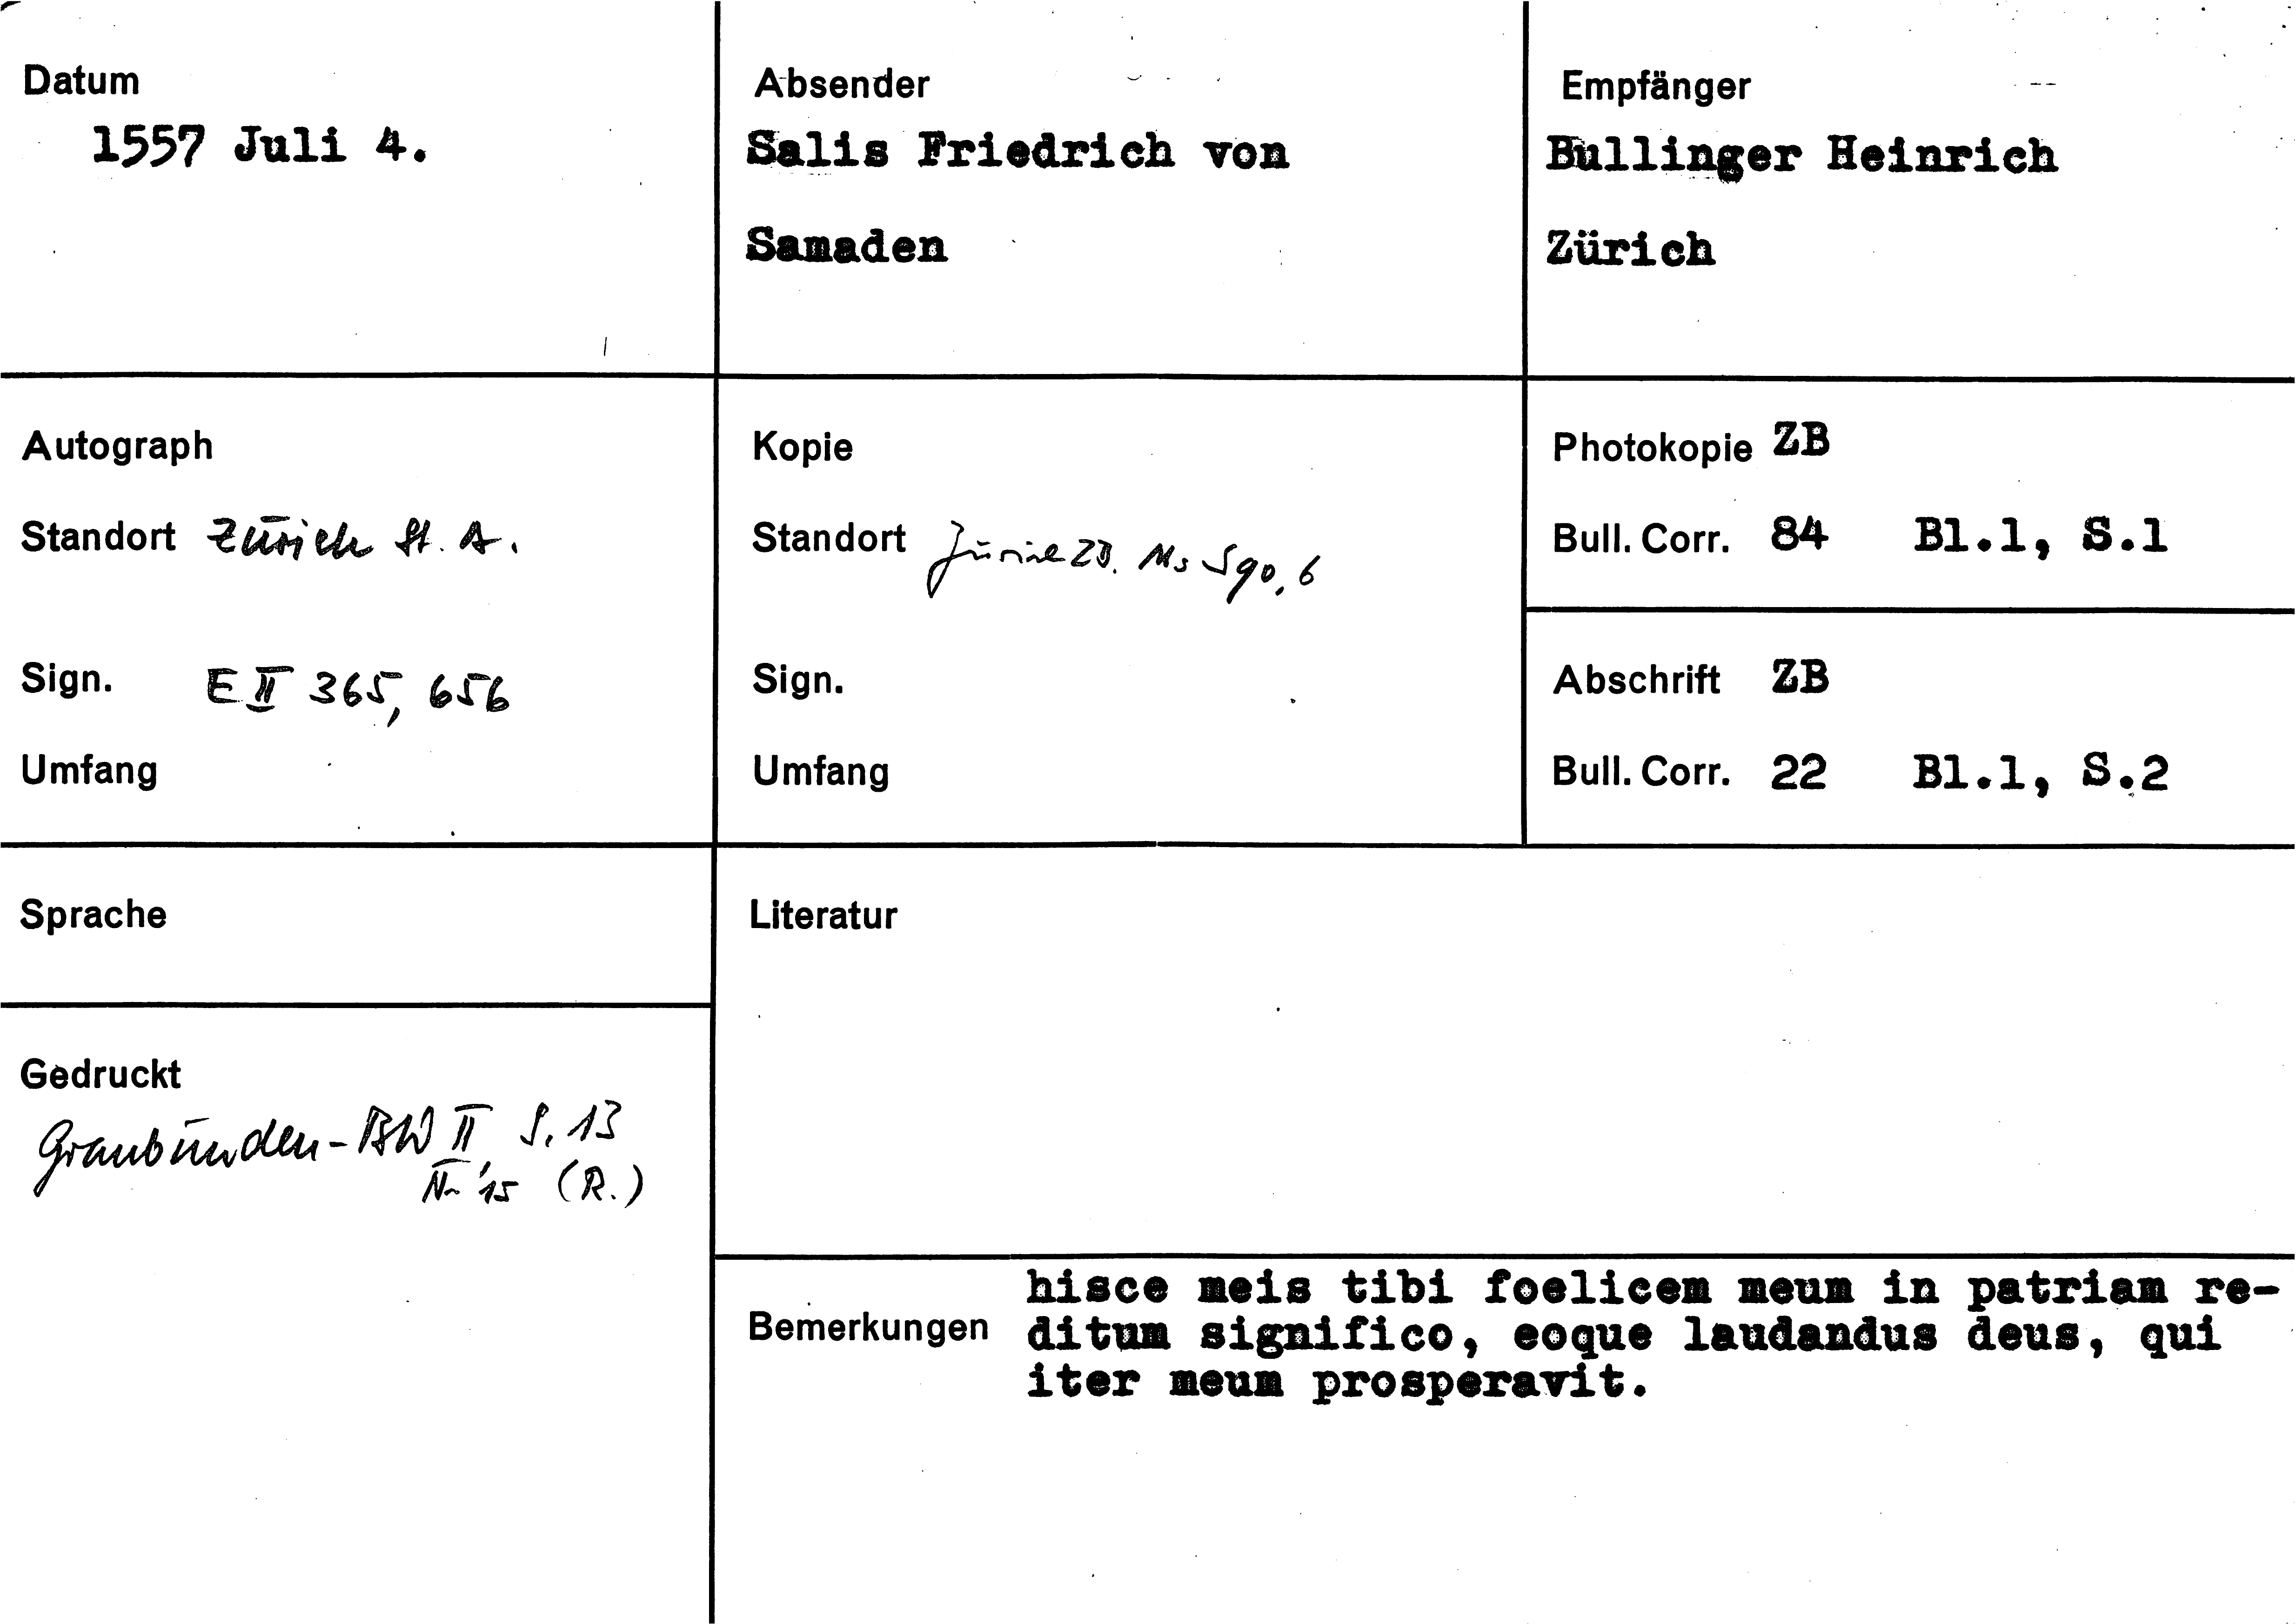 Datum
1557 Juli 4.
Absender
Salis Friedrich von
Samaden
Empfänger
Bullinger Heinrich
Zürich
Autograph
Standort Zürich St. A.
Sign. E II 365, 656
Umfang
Kopie
Standort Zürich ZB. Ms S 90, 6
Sign.
Umfang
Photokopie ZB
Bull. Corr. 84 Bl.1, S.1
Abschrift ZB
Bull. Corr. 22 Bl.1, S.2
Sprache
Literatur
Gedruckt
Graubünden-BW II, S. 13
Nr 15 (R.)
Bemerkungen
hisce meis tibi foelicem meum in patriam re-
ditum significo, eoque laudandus deus, qui
iter meum prosperavit.